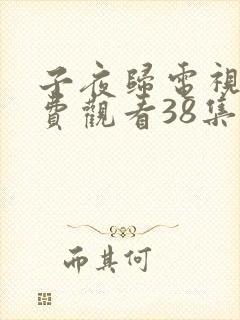 子夜歸電視
費觀看38集
而其何